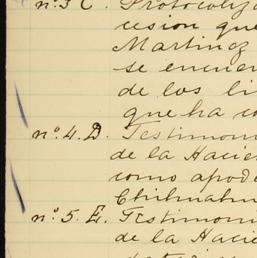 n.º 3 C. Protocoliza
cesion que
Martinez
se encuen
de los li
que ha co
n.º 4. D. Testimoni
de la Hacie
como apod
Chihuahu
n.º 5. E. Testimoni
de la Hacie